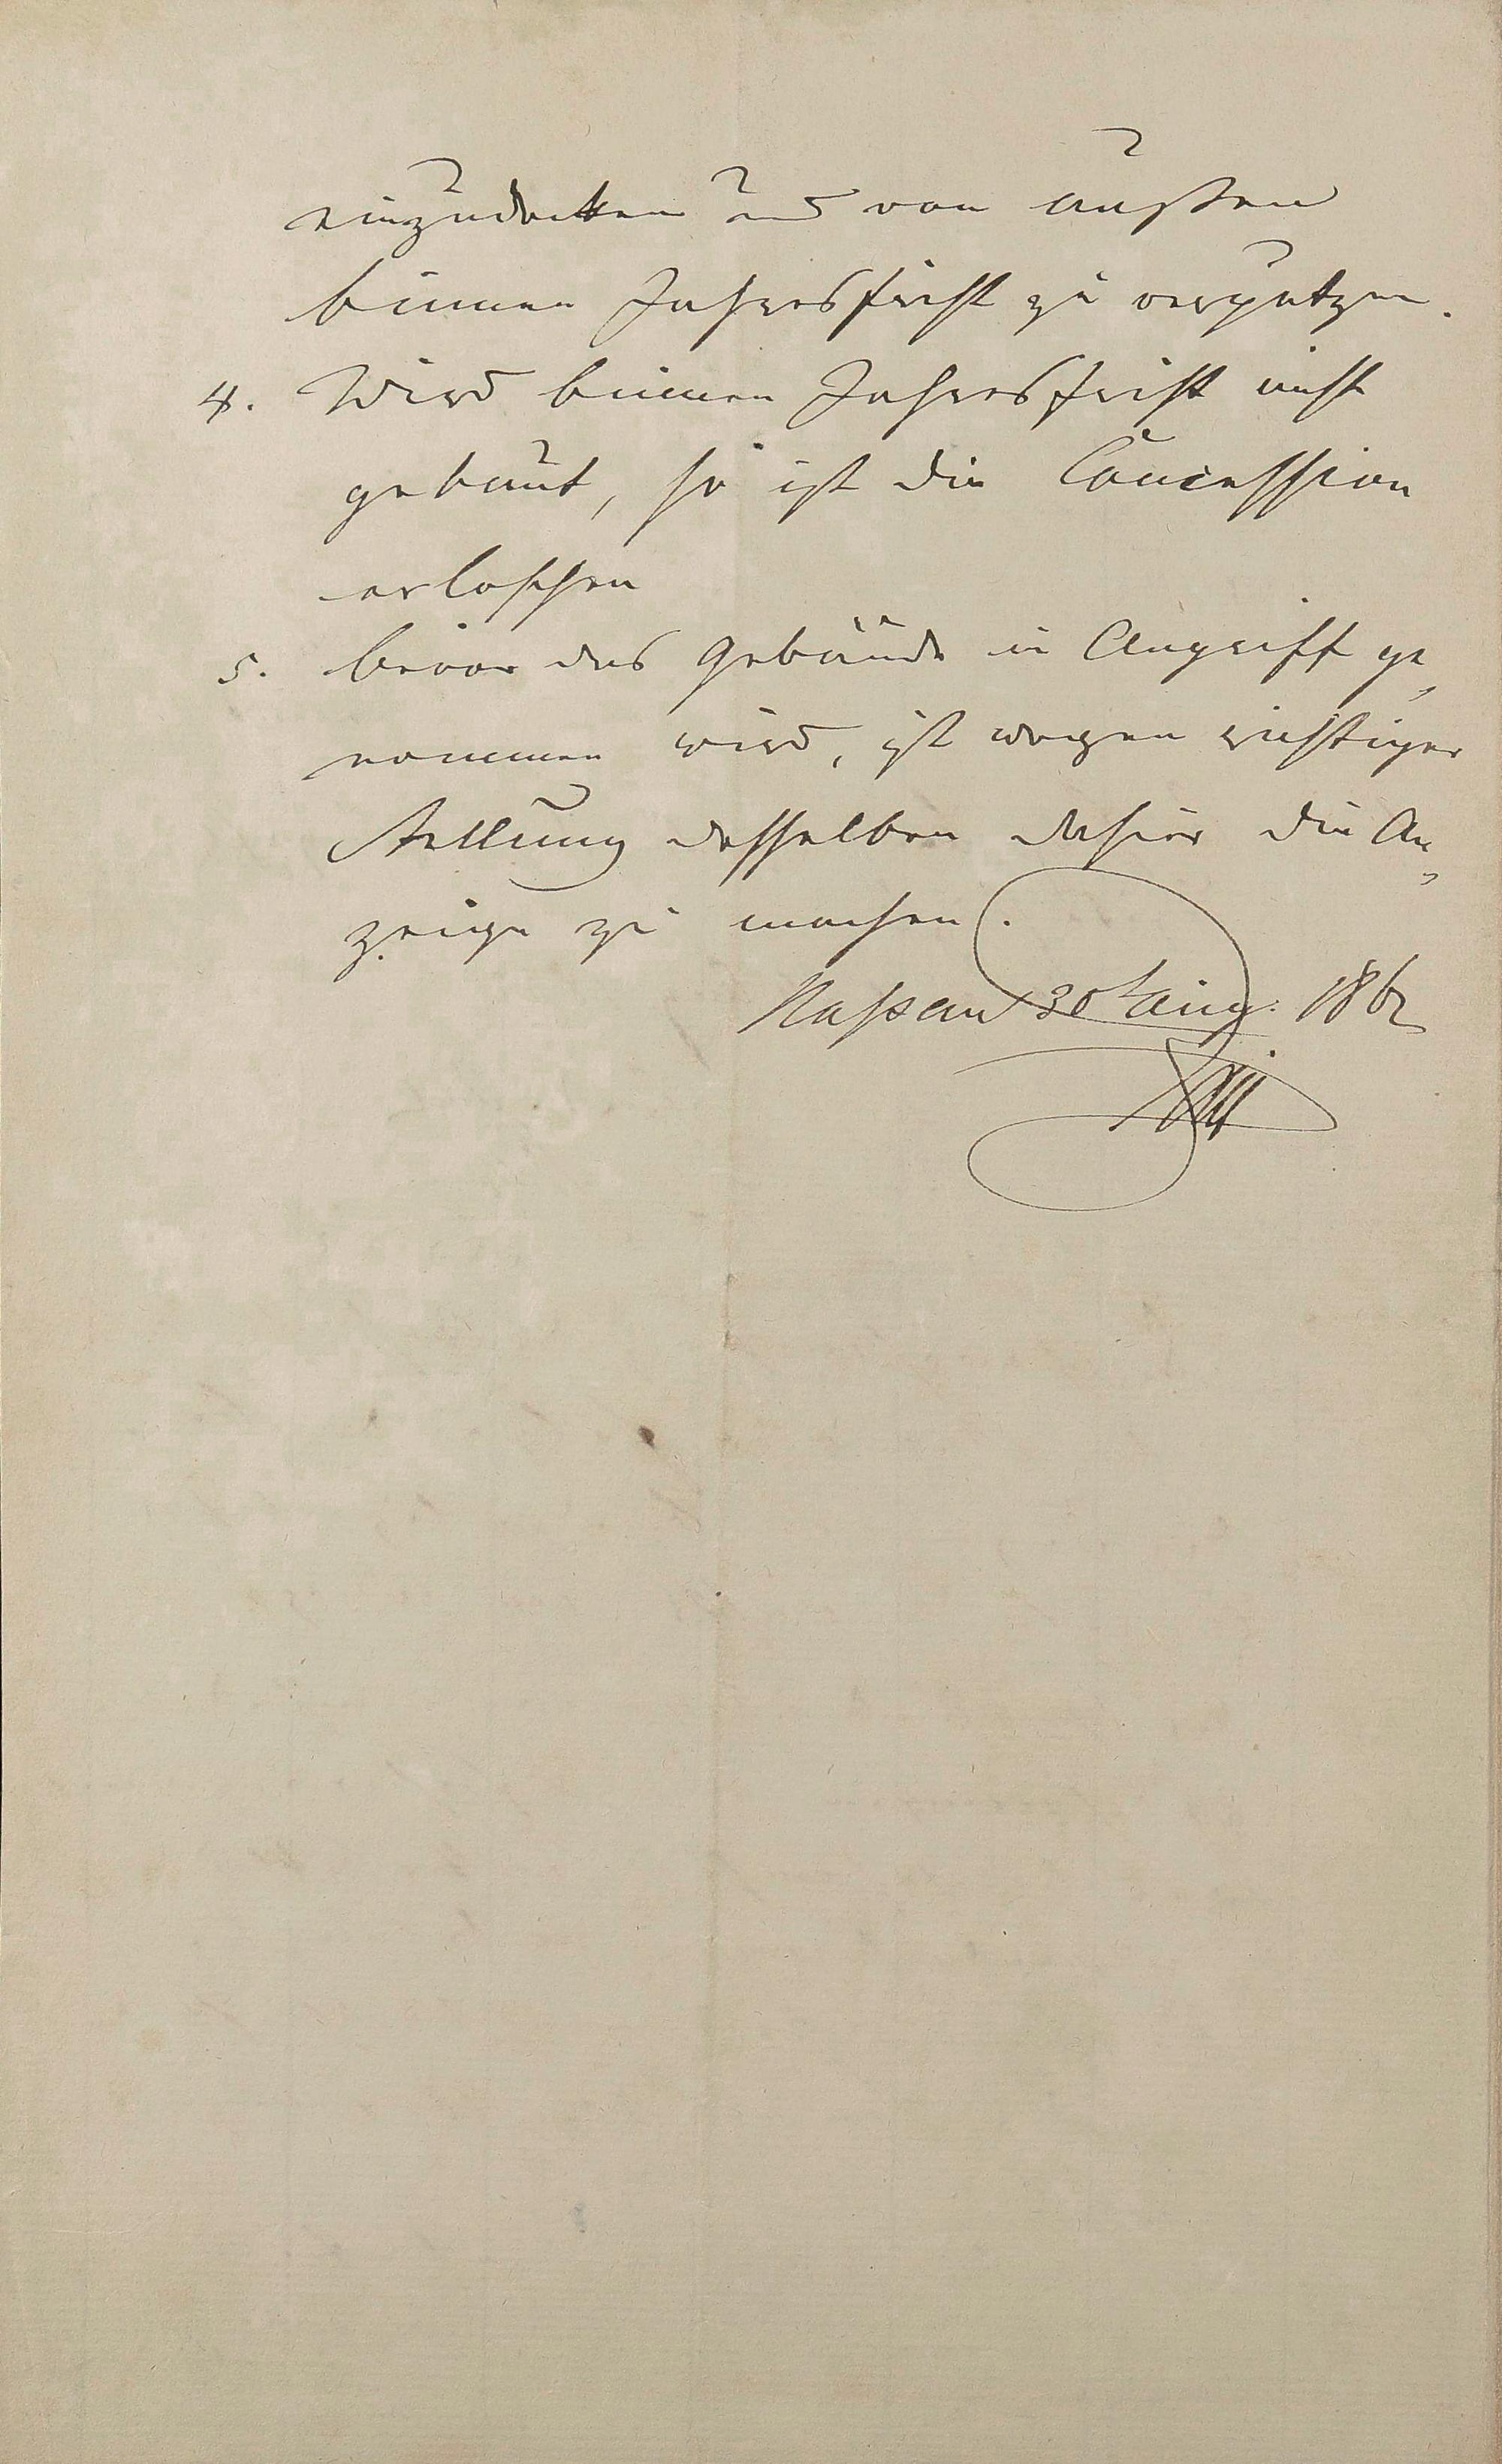 einzudecken und von außen
binnen Jahresfrist zu verputzen.
4. Wird binnen Jahresfrist nicht
gebaut, so ist die Concession
erloschen
5. bevor das Gebäude in Angriff ge„
nommen wird, ist wegen richtiger
Stellung desselben dahier die An„
zeige zu machen.
Nassau 30t Aug. 1862